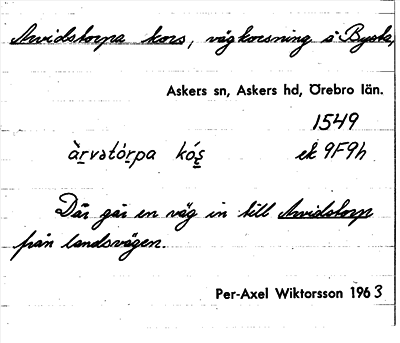 Arvidstorpa kors, vägkorsning å Bysta,
Askers sn, Askers hd, Örebro län.
1549
àrvatórpa kós̱ ek 9F9h
Där går en väg in till Arvidstorp
från landsvägen.
Per-Axel Wiktorsson 1963